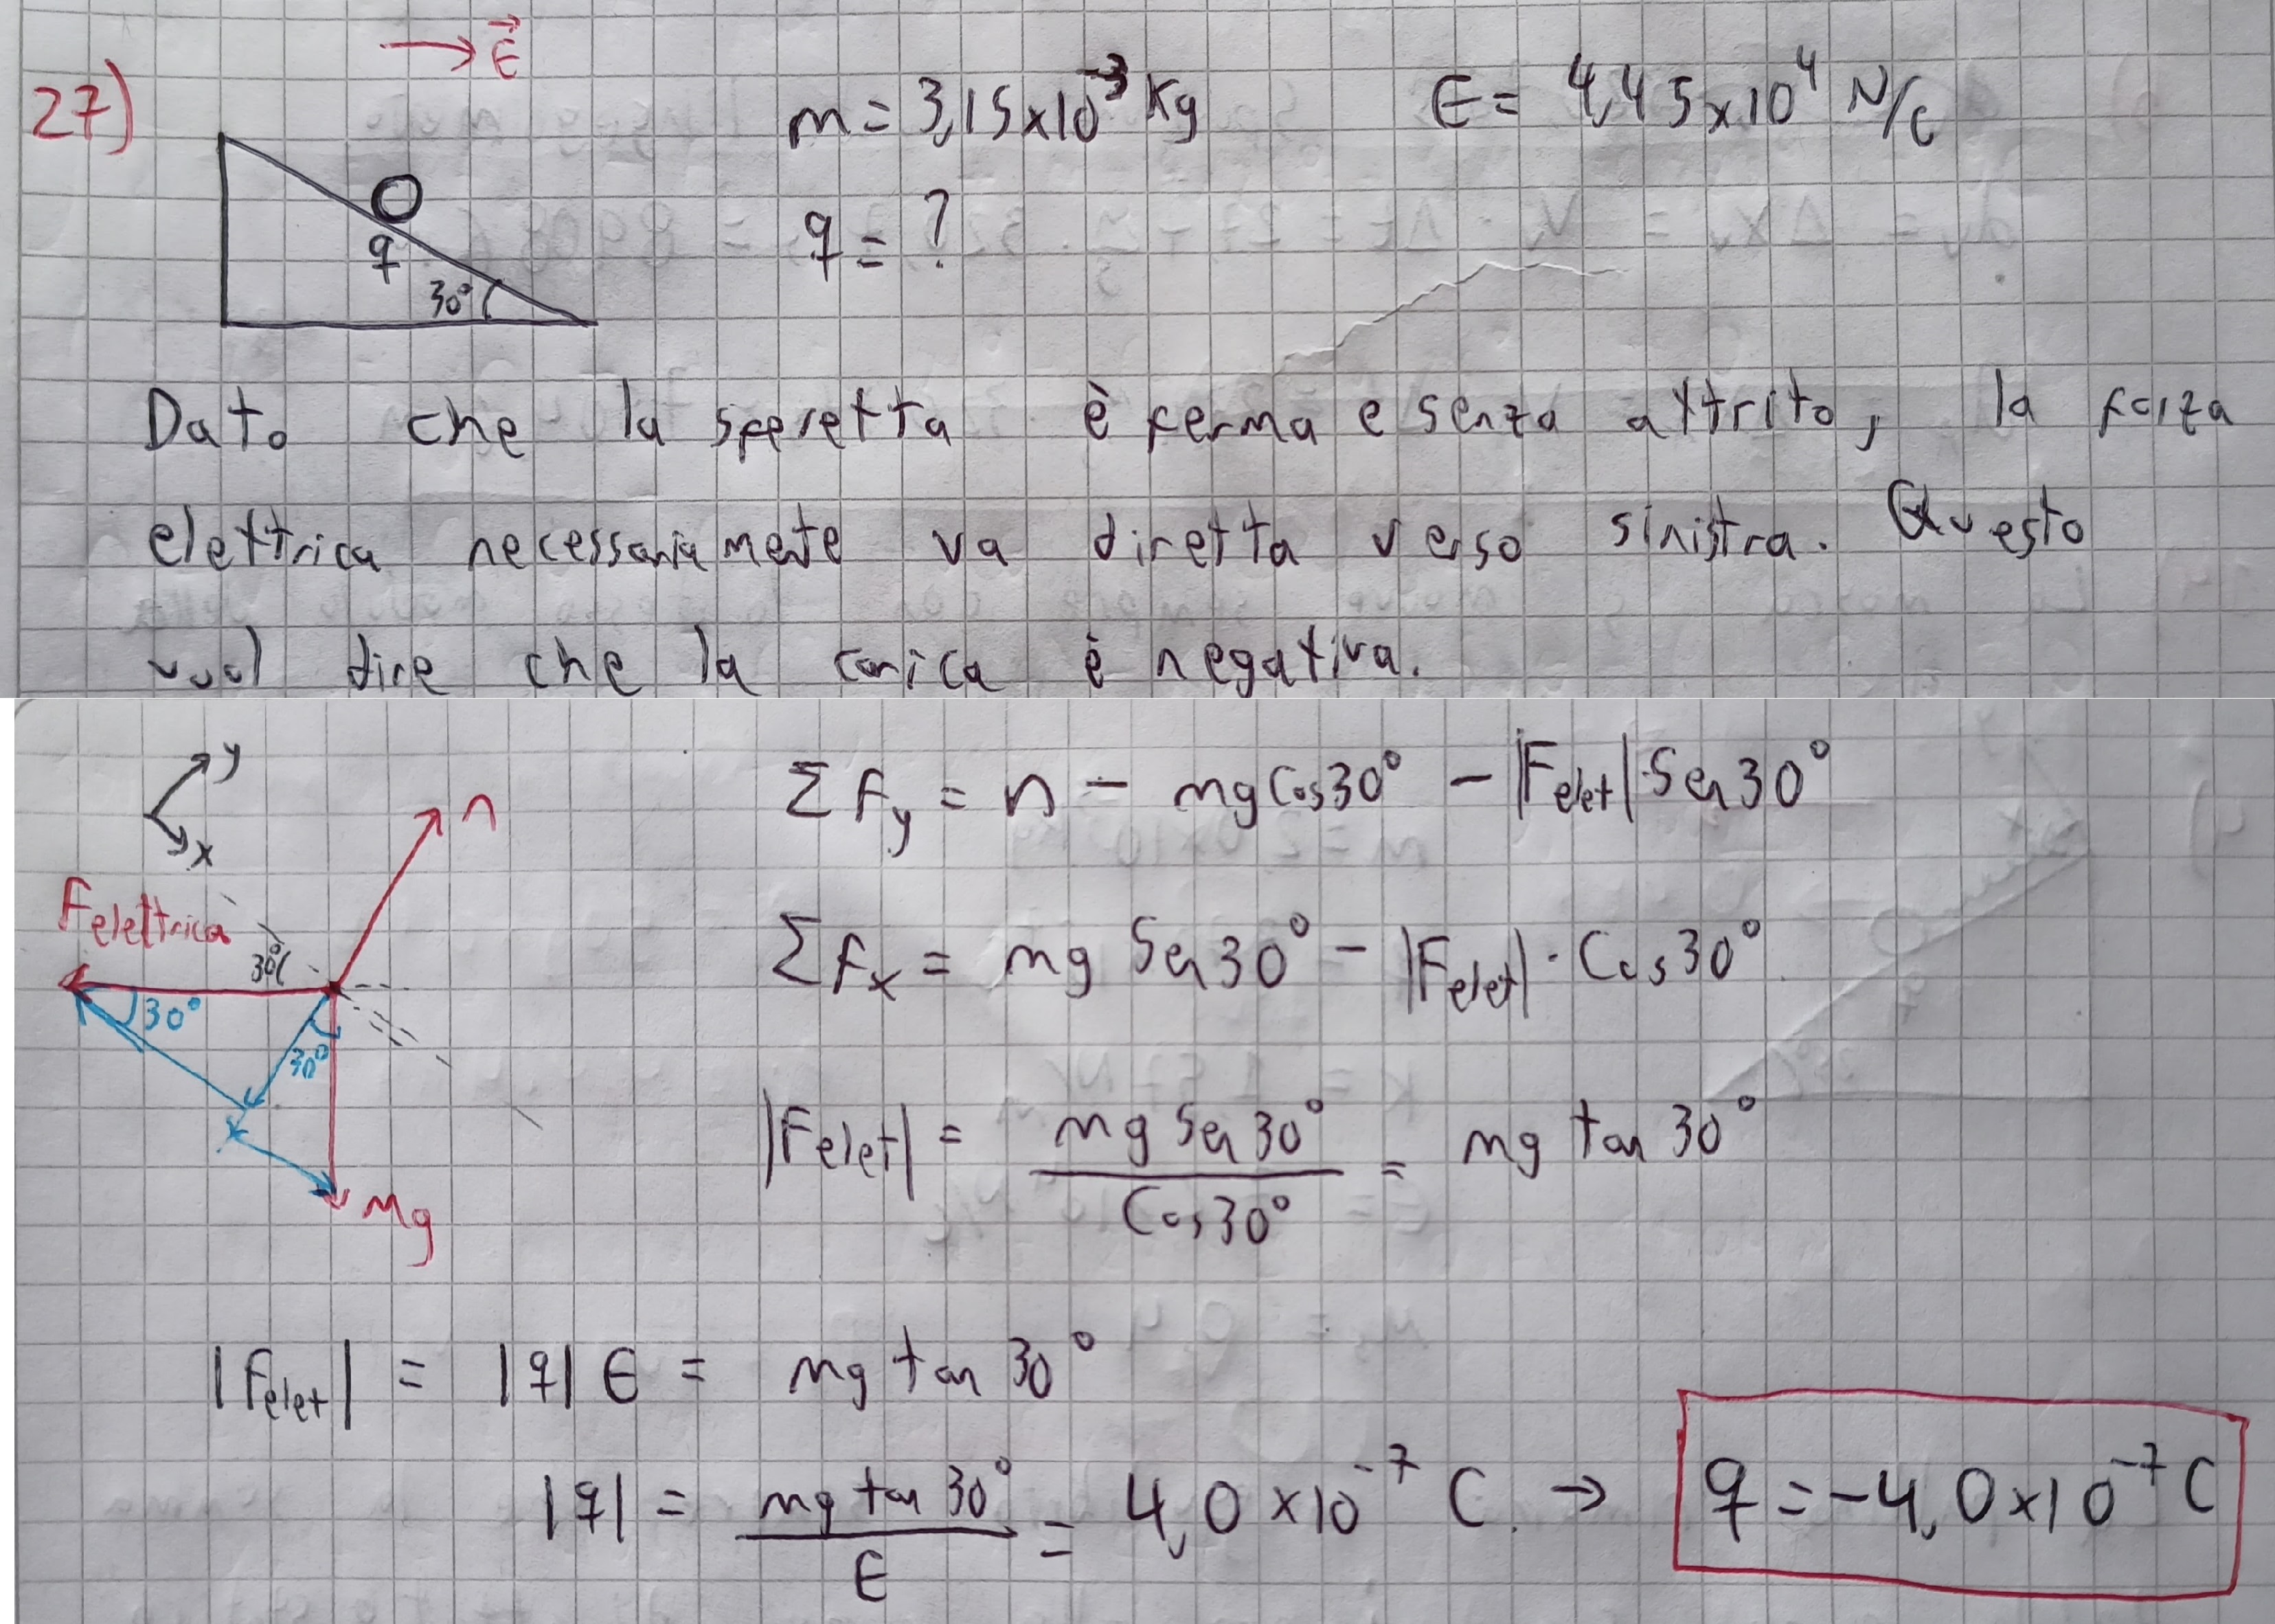 → E⃗
27)
m = 3,15×10⁻³ Kg E = 4,45×10⁴ N/C
q = ?
q
30°
Dato che la sferetta è ferma e senza attrito, la forza
elettrica necessariamente va diretta verso sinistra. Questo
vuol dire che la carica è negativa.
y
x
n
Felettrica
30°
30°
30°
mg
ΣFy = n - mg Cos30° - |Felet|·Sen30°
ΣFx = mg Sen30° - |Felet|·Cos30°
|Felet| = mg Sen30° / Cos30° = mg tan 30°
|Felet| = |q| E = mg tan 30°
|q| = mg tan 30° / E = 4,0×10⁻⁷ C. → q = -4,0×10⁻⁷ C